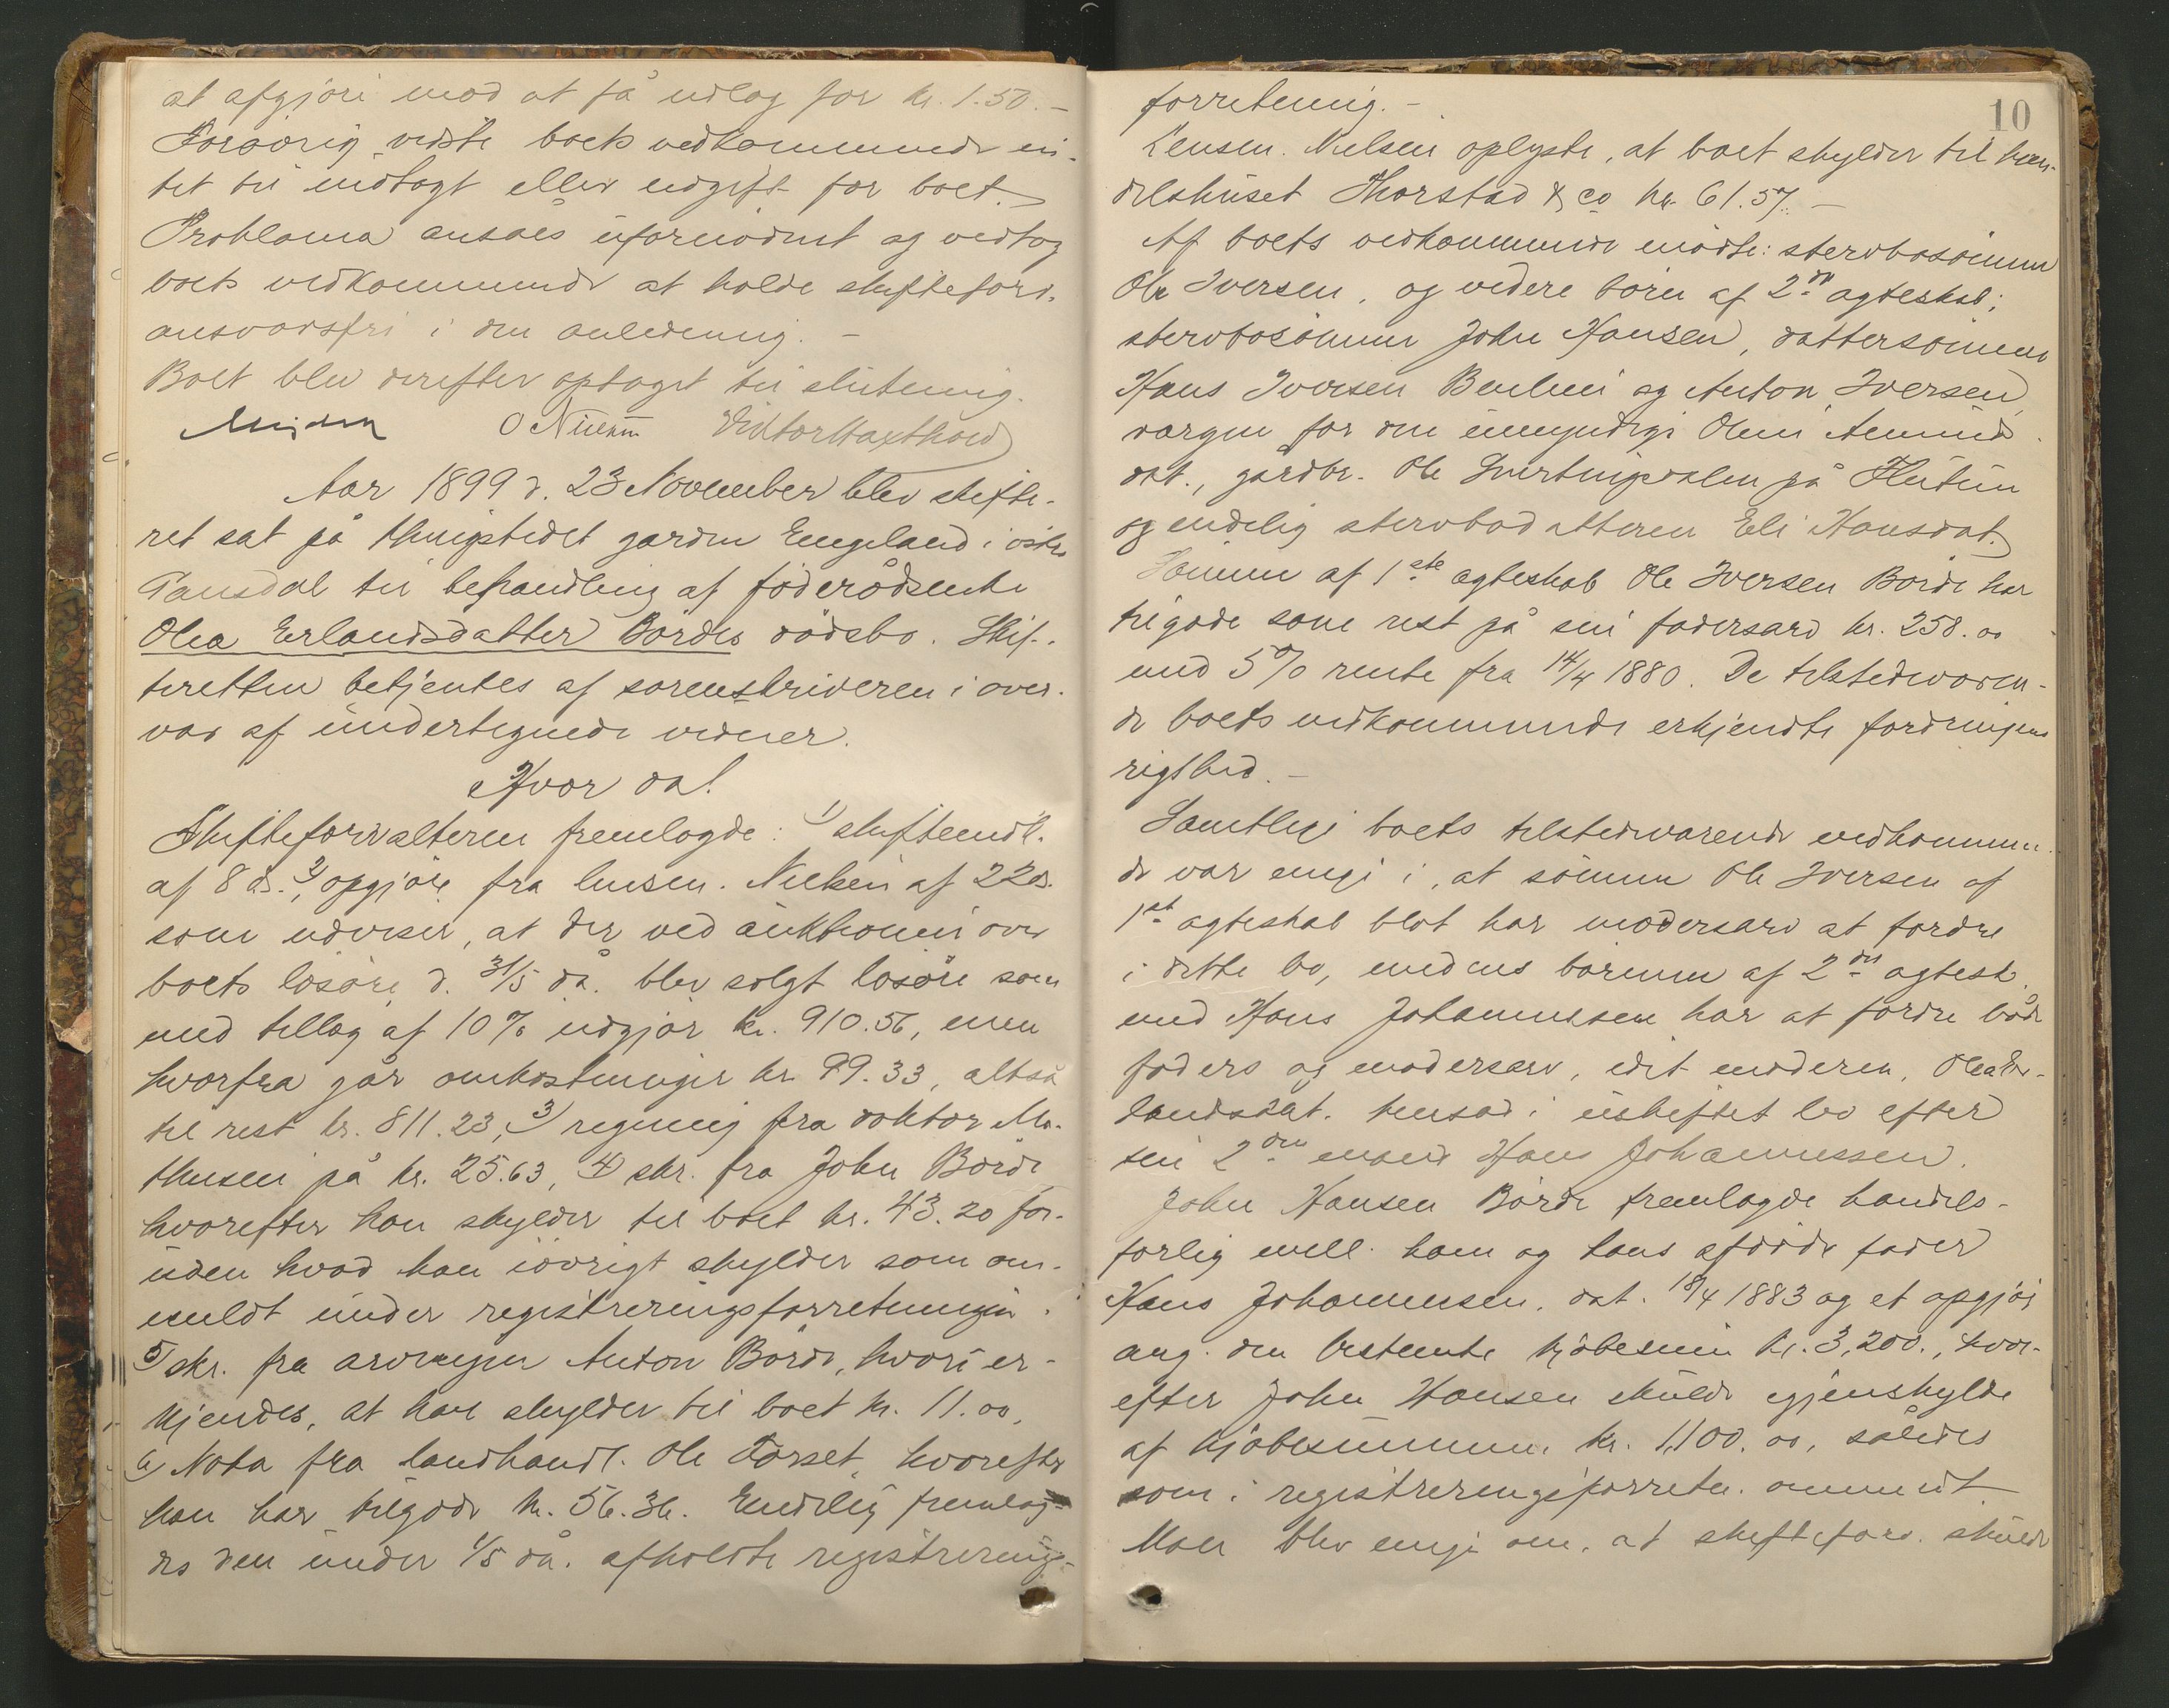 at afgjøre mod at få udlog for kr. 1.50. –
Forøvrig vidste boets vedkommende in-
tet til indtægt eller udgift for boet.
Proklama ansåes ufornødent og vedtog
boets vedkommende at holde skifteforv.
ansvarsfri i den anledning. –
Boet blev derefter optaget til slutning.
O Nilsen Viktor Haxthow
Aar 1899 d. 23 November blev skifte-
ret sat på thingstedet gården Engeland i østre
Gausdal til behandling af føderådsenke
Olea Erlandsdatter Bördes dødsbo. Skif-
teretten betjentes af sorenskriveren i over-
vær af undertegnede vidner.
Hvor da!
Skifteforvalteren fremlagde: 1) skifteindk.
af 8 ds. 2) opgjør fra lensm. Nielsen af 22 ds.
som udviser, at der ved auktionen over
boets løsøre d. 31/5 då. blev solgt løsøre som
med tillæg af 10% udgjør kr. 910.56, men
hvorfra går omkostninger kr. 99.33, altså
til rest kr. 811.23, 3) regning fra doktor Ma-
thesen på kr. 25.63, 4) skr. fra John Börde
hvorefter han skylder til boet kr. 43.20 for-
uden hvad han iøvrigt skylder som om-
meldt under registreringsforretningen.
5) skr. fra arvingen Anton Börde, hvori er-
kjendes, at han skylder til boet kr. 11.00,
6) Nota fra landhandl. Ole Forset, hvorefter
han har tilgode kr. 56.36. Endelig fremlag-
des den under 1/5 då. afholdte registrerings-
10
forretning. –
Lensm. Nielsen oplyste, at boet skylder til han-
delshuset Thorstad & Co kr. 61.57. –
Af boets vedkommende mødte: stervbosønnen
Ole Iversen, og videre børn af 2det ægteskab;
stervbosønnen John Hansen, dattersønnene
Hans Iversen og Anton Iversen,
værgen for den umyndige Oline Amunds-
dat., gårdbr. Ole på
og endelig stervbodatteren Eli Hansdat.
Sønnen af 1ste ægteskab Ole Iversen Börde har
tilgode som rest på sin fadersarv kr. 258.00
med 5% rente fra 14/4 1880. De tilstedeværen-
de boets vedkommende erkjendte fordringens
rigthed. –
Samtlige boets tilstedeværende vedkommen-
de var enige i, at sønnen Ole Iversen af
1ste ægteskab blot har modersarv at fordre
i dette bo, medens børnene af 2det ægtesk.
med Hans Johannessen har at fordre både
faders og modersarv, idet moderen, Olea Er-
landsdat. hensad i uskiftet bo efter
sin 2den mand Hans Johannessen.
John Hansen Börde fremlagde handels-
forlig mell. ham og hans afdøde fader
Hans Johannessen, dat. 18/4 1883 og et opgjør
ang. den bestemte kjøbesum kr. 3,200., hvor-
efter John Hansen skulde igjenskylde
af kjøbesummen kr. 1,100.00, således
som i registreringsforretn. ommeldt.
Man blev enige om, at skifteforv. skulde